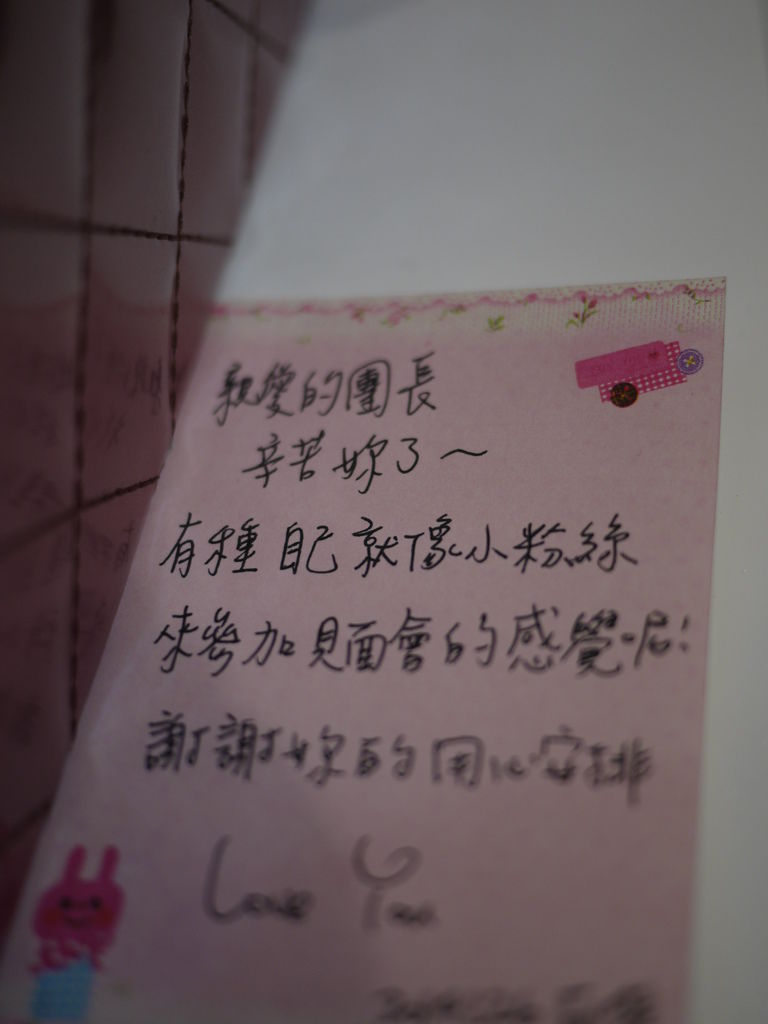 親愛的團長
辛苦妳了～
有種自己就像小粉絲
來參加見面會的感覺呢!
謝謝妳的用心安排
Love You